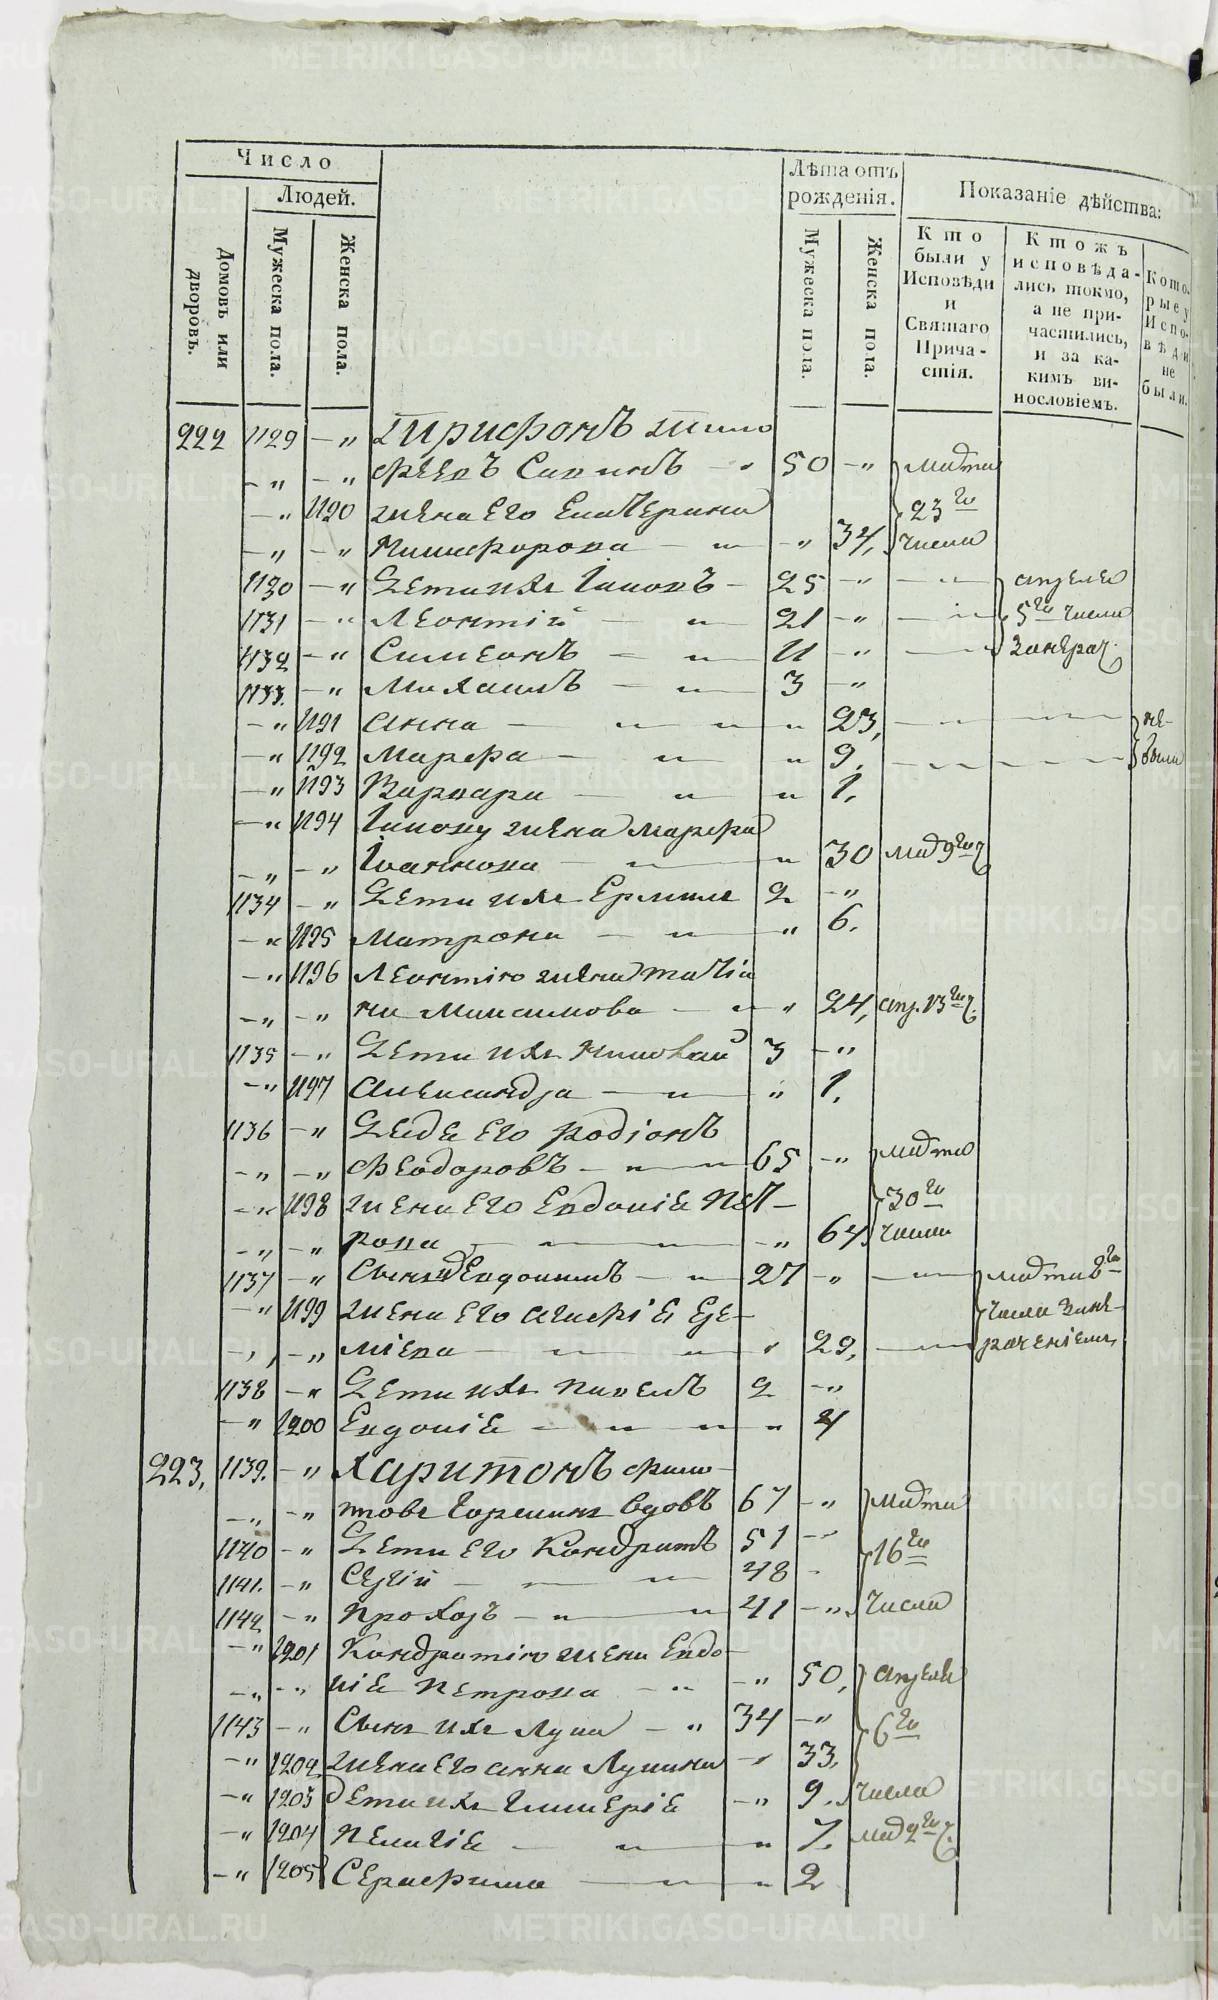 Число
Людей.
Домовъ или дворовъ.
Мужеска пола.
Женска пола.
Лѣта отъ рожденія.
Мужеска пола.
Женска пола.
Показаніе дѣйства:
Кто были у Исповѣди и Святаго Причастія.
Ктожъ исповѣдались токмо, а не причастились, и за какимъ винословіемъ.
Которые у Исповѣди не были.
222 1129 — „ Трифонъ Тимо
— „ — „ феевъ — „ 50 — „ марта
— „ 1190 жена его Екатерина 23го
— „ — „ Никифорова — „ — „ 34, числа
1130 — „ Дети ихъ Іаковъ — 25 — „ — „ апреля
1131 — „ Леонтій — „ 21 — „ — „ 5го числа
1132 — „ Симеонъ — „ 11 — „
1133. — „ Михаилъ — „ 3 — „
— „ 1191 Анна — „ „ „ 23, не
— „ 1192 Марфа — „ „ 9. были
— „ 1193 Варвара — „ „ 1.
— „ 1194 Іакову жена Марфа
— „ — „ Іваннова — „ „ 30 мар 9го ч
1134 — „ Дети ихъ Ермилъ 2 — „
— „ 1195 Матрона — „ „ 6.
— „ 1196 Леонтію жена Татіа
— „ — „ на Максимова — „ „ 24, апр. 13го ч.
1135 — „ Дети ихъ Николай 3 — „
— „ 1197 Александра — „ „ 1.
1136 — „ Дедъ его Родіонъ
— „ — „ Феодоровъ — „ 65 — „ марта
— „ 1198 жена его Евдокіа Пет 30го
— „ — „ рова — „ 64, числа
1137 — „ Сынъ Евдокимъ — „ 27 — „ — „ марта 8го
— „ 1199 жена его Агафіа Ере числа
— „ — „ міева — „ „ „ 29, — „
1138 — „ Дети ихъ Павелъ 2 — „
— „ 1200 Евдокіа — „ „ „ „ 4
223, 1139. — „ Харитонъ Фило
— „ — „ товъ вдовъ 67 — „ марта
1140 — „ Дети его Кондратъ 51 — „ 16го
1141. — „ Сергій — „ 48 -
1142 — „ Прохоръ — „ 41 — „ числа
— „ 1201 Кондратію жена Евдо
— „ — „ кіа Петрова — „ — „ 50, апреля
1143 — „ Сынъ ихъ Лука — „ 34 — „ 6го
— „ 1202 жена его Анна Лукина — „ 33,
— „ 1203 Дети ихъ Гликеріа — „ 9. числа
— „ 1204 Пелагіа — „ „ 7. мар 2го ч.
— „ 1205 Серафима — „ „ 2